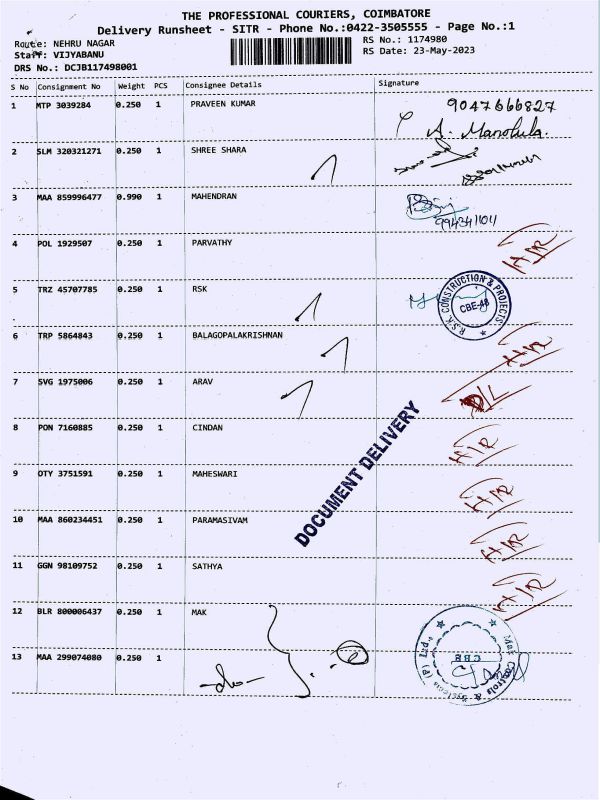 THE PROFESSIONAL COURIERS, COIMBATORE
Delivery Runsheet - SITR - Phone No.:0422-3505555 - Page No.:1
Route: NEHRU NAGAR
Staff: VIJYABANU
DRS No.: DCJB117498001
RS No.: 1174980
RS Date: 23-May-2023
S No Consignment No Weight PCS Consignee Details Signature
1 MTP 3039284 0.250 1 PRAVEEN KUMAR 9047666827
A. Manokula.
2 SLM 320321271 0.250 1 SHREE SHARA
3 MAA 859996477 0.990 1 MAHENDRAN
4 POL 1929507 0.250 1 PARVATHY H/R
5 TRZ 45707785 0.250 1 RSK
R.S.K. CONSTRUCTION & PROJECTS
CBE-48
6 TRP 5864843 0.250 1 BALAGOPALAKRISHNAN H/R
7 SVG 1975006 0.250 1 ARAV D/L
8 PON 7160885 0.250 1 CINDAN H/R
9 OTY 3751591 0.250 1 MAHESWARI H/R
DOCUMENT DELIVERY
10 MAA 860234451 0.250 1 PARAMASIVAM H/R
11 GGN 98109752 0.250 1 SATHYA H/R
12 BLR 800006437 0.250 1 MAK
Mak Controls & Systems (P) Ltd.
CBE
13 MAA 299074080 0.250 1
-do-